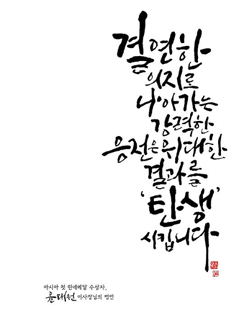 결연한
의지로
나아가는
강력한
응전은 위대한
결과를
'탄생'
시킵니다
아시아 첫 한데메달 수상자,
윤대원 이사장님의 명언